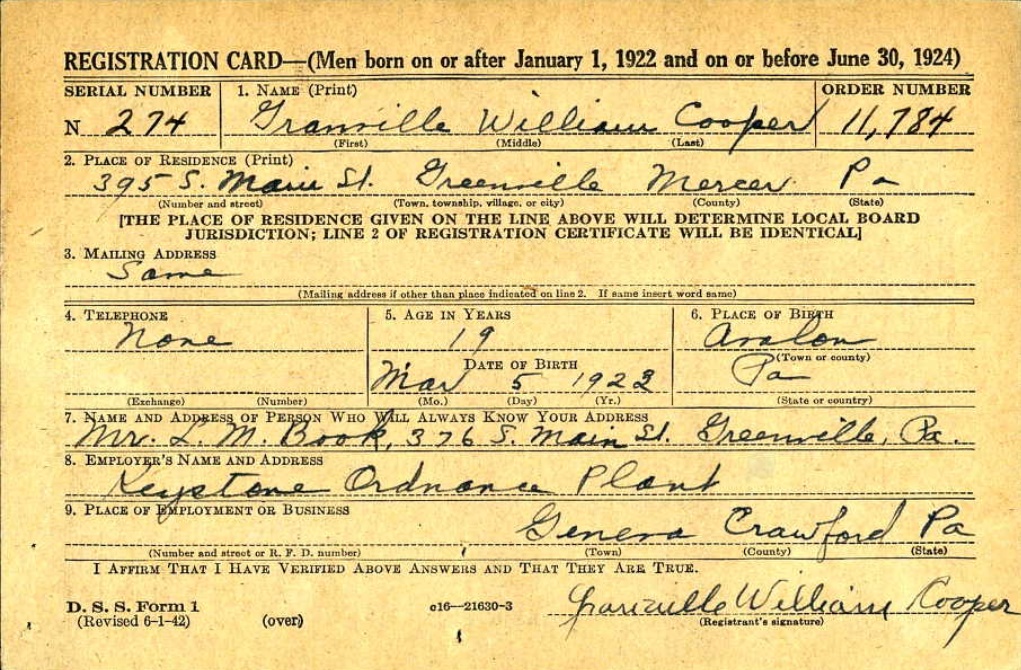 REGISTRATION CARD—(Men born on or after January 1, 1922 and on or before June 30, 1924)
SERIAL NUMBER 1. NAME (Print) ORDER NUMBER
N 274 Granville William Cooper 11,784
(First) (Middle) (Last)
2. PLACE OF RESIDENCE (Print)
395 S. Main St. Greenville Mercer Pa
(Number and street) (Town, township, village, or city) (County) (State)
[THE PLACE OF RESIDENCE GIVEN ON THE LINE ABOVE WILL DETERMINE LOCAL BOARD
JURISDICTION; LINE 2 OF REGISTRATION CERTIFICATE WILL BE IDENTICAL]
3. MAILING ADDRESS
Same
(Mailing address if other than place indicated on line 2. If same insert word same)
4. TELEPHONE 5. AGE IN YEARS 6. PLACE OF BIRTH
None 19 Avalon
(Town or county)
DATE OF BIRTH
Mar 5 1923 Pa
(Exchange) (Number) (Mo.) (Day) (Yr.) (State or country)
7. NAME AND ADDRESS OF PERSON WHO WILL ALWAYS KNOW YOUR ADDRESS
Mr. L. M. Book, 376 S. Main St. Greenville, Pa.
8. EMPLOYER'S NAME AND ADDRESS
Keystone Ordnance Plant
9. PLACE OF EMPLOYMENT OR BUSINESS
Geneva Crawford Pa
(Number and street or R. F. D. number) (Town) (County) (State)
I AFFIRM THAT I HAVE VERIFIED ABOVE ANSWERS AND THAT THEY ARE TRUE.
D. S. S. Form 1 c16—21630-3 Granville William Cooper
(Revised 6-1-42) (over) (Registrant's signature)